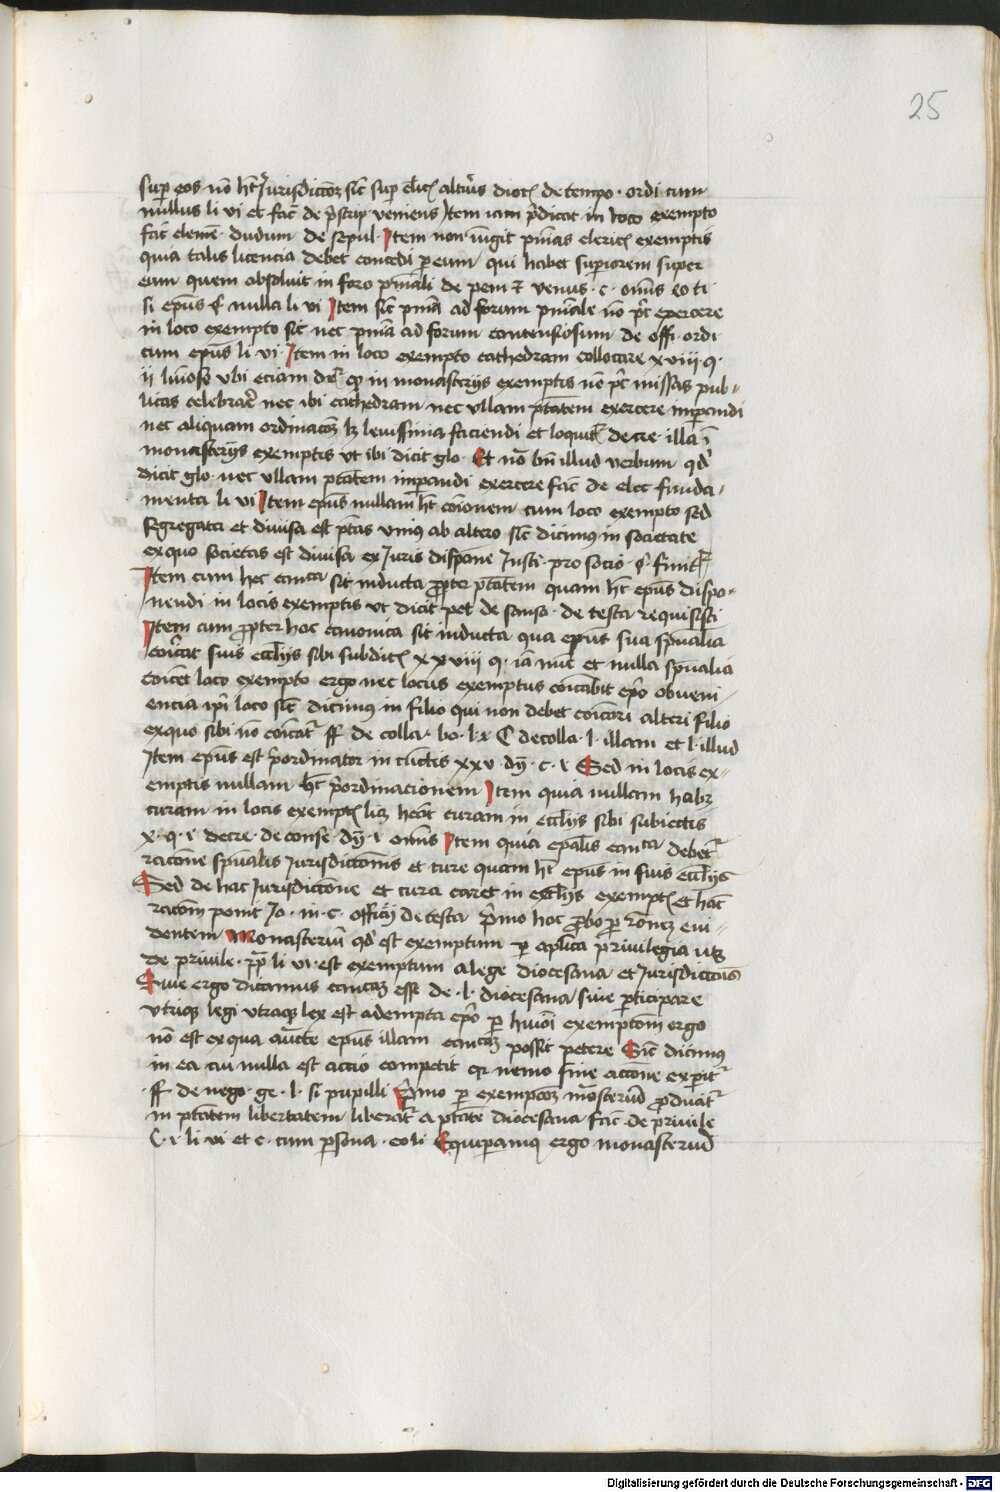 25
sup eos nō hēt Jurisdictōēz sic̄ sup cleric̄ alteriꝰ dioc̄ de tempo · ordi cum
nullus li vi et fac̄ de p̄scrip veniens Item iam p̄dicat in loco exempto
fac̄ cleme · dudum de sepul · Item non iūgit pn̄ias cleric̄ exemptis
quia talis licencia debet concedi per eum qui habet superiorem super
eum quem absoluit in foro pn̄iali de pem ⁊ venus · c · omīs eo ti
si ep̄us §ͥ nulla li vi Item sic̄ pn̄ia ad forum pn̄iale nō pt̄ exercere
in loco exempto sic nec pn̄ia ad forum contensiosum de offi · ordi
cum ep̄us li vi · Item in loco exempto cathedram collocare xviii · q ·
ii luminoso vbi eciam dr̄ ꝙ in monasterijs exemptis nō pt̄ missas pub-
licas celebrare nec ibi cathedram nec vllam ptātem exercere imperandi
nec aliquam ordinacōēz lꝫ leuissima faciendi et loquit̄ decre · illa ī
monasterijs exemptis vt ibi dicit glo · Et nō bn̄ illud verbum qd̓
dicit glo · nec vllam ptātem imperandi exercere fac̄ de elec funda-
menta li vi Item ep̄us nullam hēt cōionem cum loco exempto sed
segregata et diuisa est ptās vnius ab altero sic̄ dicimus in societate
ex quo societas est diuisa ex Juris dispōne Justi · pro socio · §ͥ · finit̄
Item cum hec canᶜᵃ sit inducta propter ptātem quam hēt ep̄us dispo-
nendi in locis exemptis vt dicit pet de sansō · de testa requisisti
Item cum propter hoc canonica sit inducta qua ep̄us sua sp̄ualia
cōīcat suis eccl̄ijs sibi subditꝭ xxviii q · iā nūc et nulla sp̄ualia
cōīcet loco exempto ergo nec locus exemptus cōīcabit ep̄o obueni-
encia ip̄i loco sic̄ dicimus in filio qui non debet cōīcari alteri filio
ex quo sibi nō cōīcat̄ ff de colla · bo · l · x C de colla · l · illam et l · illud
Item ep̄us est p̄ordinator in cunctis xxv · dꝭ · c · i Sed in locis ex-
emptis nullam hēt p̄ordinacionem Item quia nullam habꝫ
curam in locis exemptꝭ licꝫ hēāt curam in eccl̄ijs sibi subiectis
x · q · i decre · de conse · dꝭ · i omīs Item quia ep̄alis canᶜᵃ debet̄
racōne sp̄ualis Jurisdictōnis et cure quam hēt ep̄us in suis eccl̄ijs
Sed de hac Jurisdictōne et cura caret in eccl̄ijs exemptꝭ et hāc
racōm ponit Jo · in · c · officij de testa Primo hoc probo per rōnēz eui-
dentem Monasteriū qd̓ est exemptum per aplīca priuilegia vtꝫ
de priuile · li vi est exemptum a lege diocesana et Jurisdictōnis
Siue ergo dicamus canᶜāz esse de · l · diocesana siue participare
vtriusqꝫ legi vtraqꝫ lex est adempta ep̄o per huiōī exemptōēm ergo
nō est ex qua auctē ep̄us illam canᶜāz possit petere Sic̄ dicimꝰ
in ea cui nulla est accio competit qr nemo sine actōne experit̄
ff de nego · ge · l · si pupilli Primo per exempcōēz mōasteriū producit̄
in ptātem libertatem liberat̄ a ptāte diocesana fac̄ · de priuile
C · i · li vi et c · cum persona · eo li Equiperamus ergo monasteriū
Digitalisierung gefördert durch die Deutsche Forschungsgemeinschaft - DFG